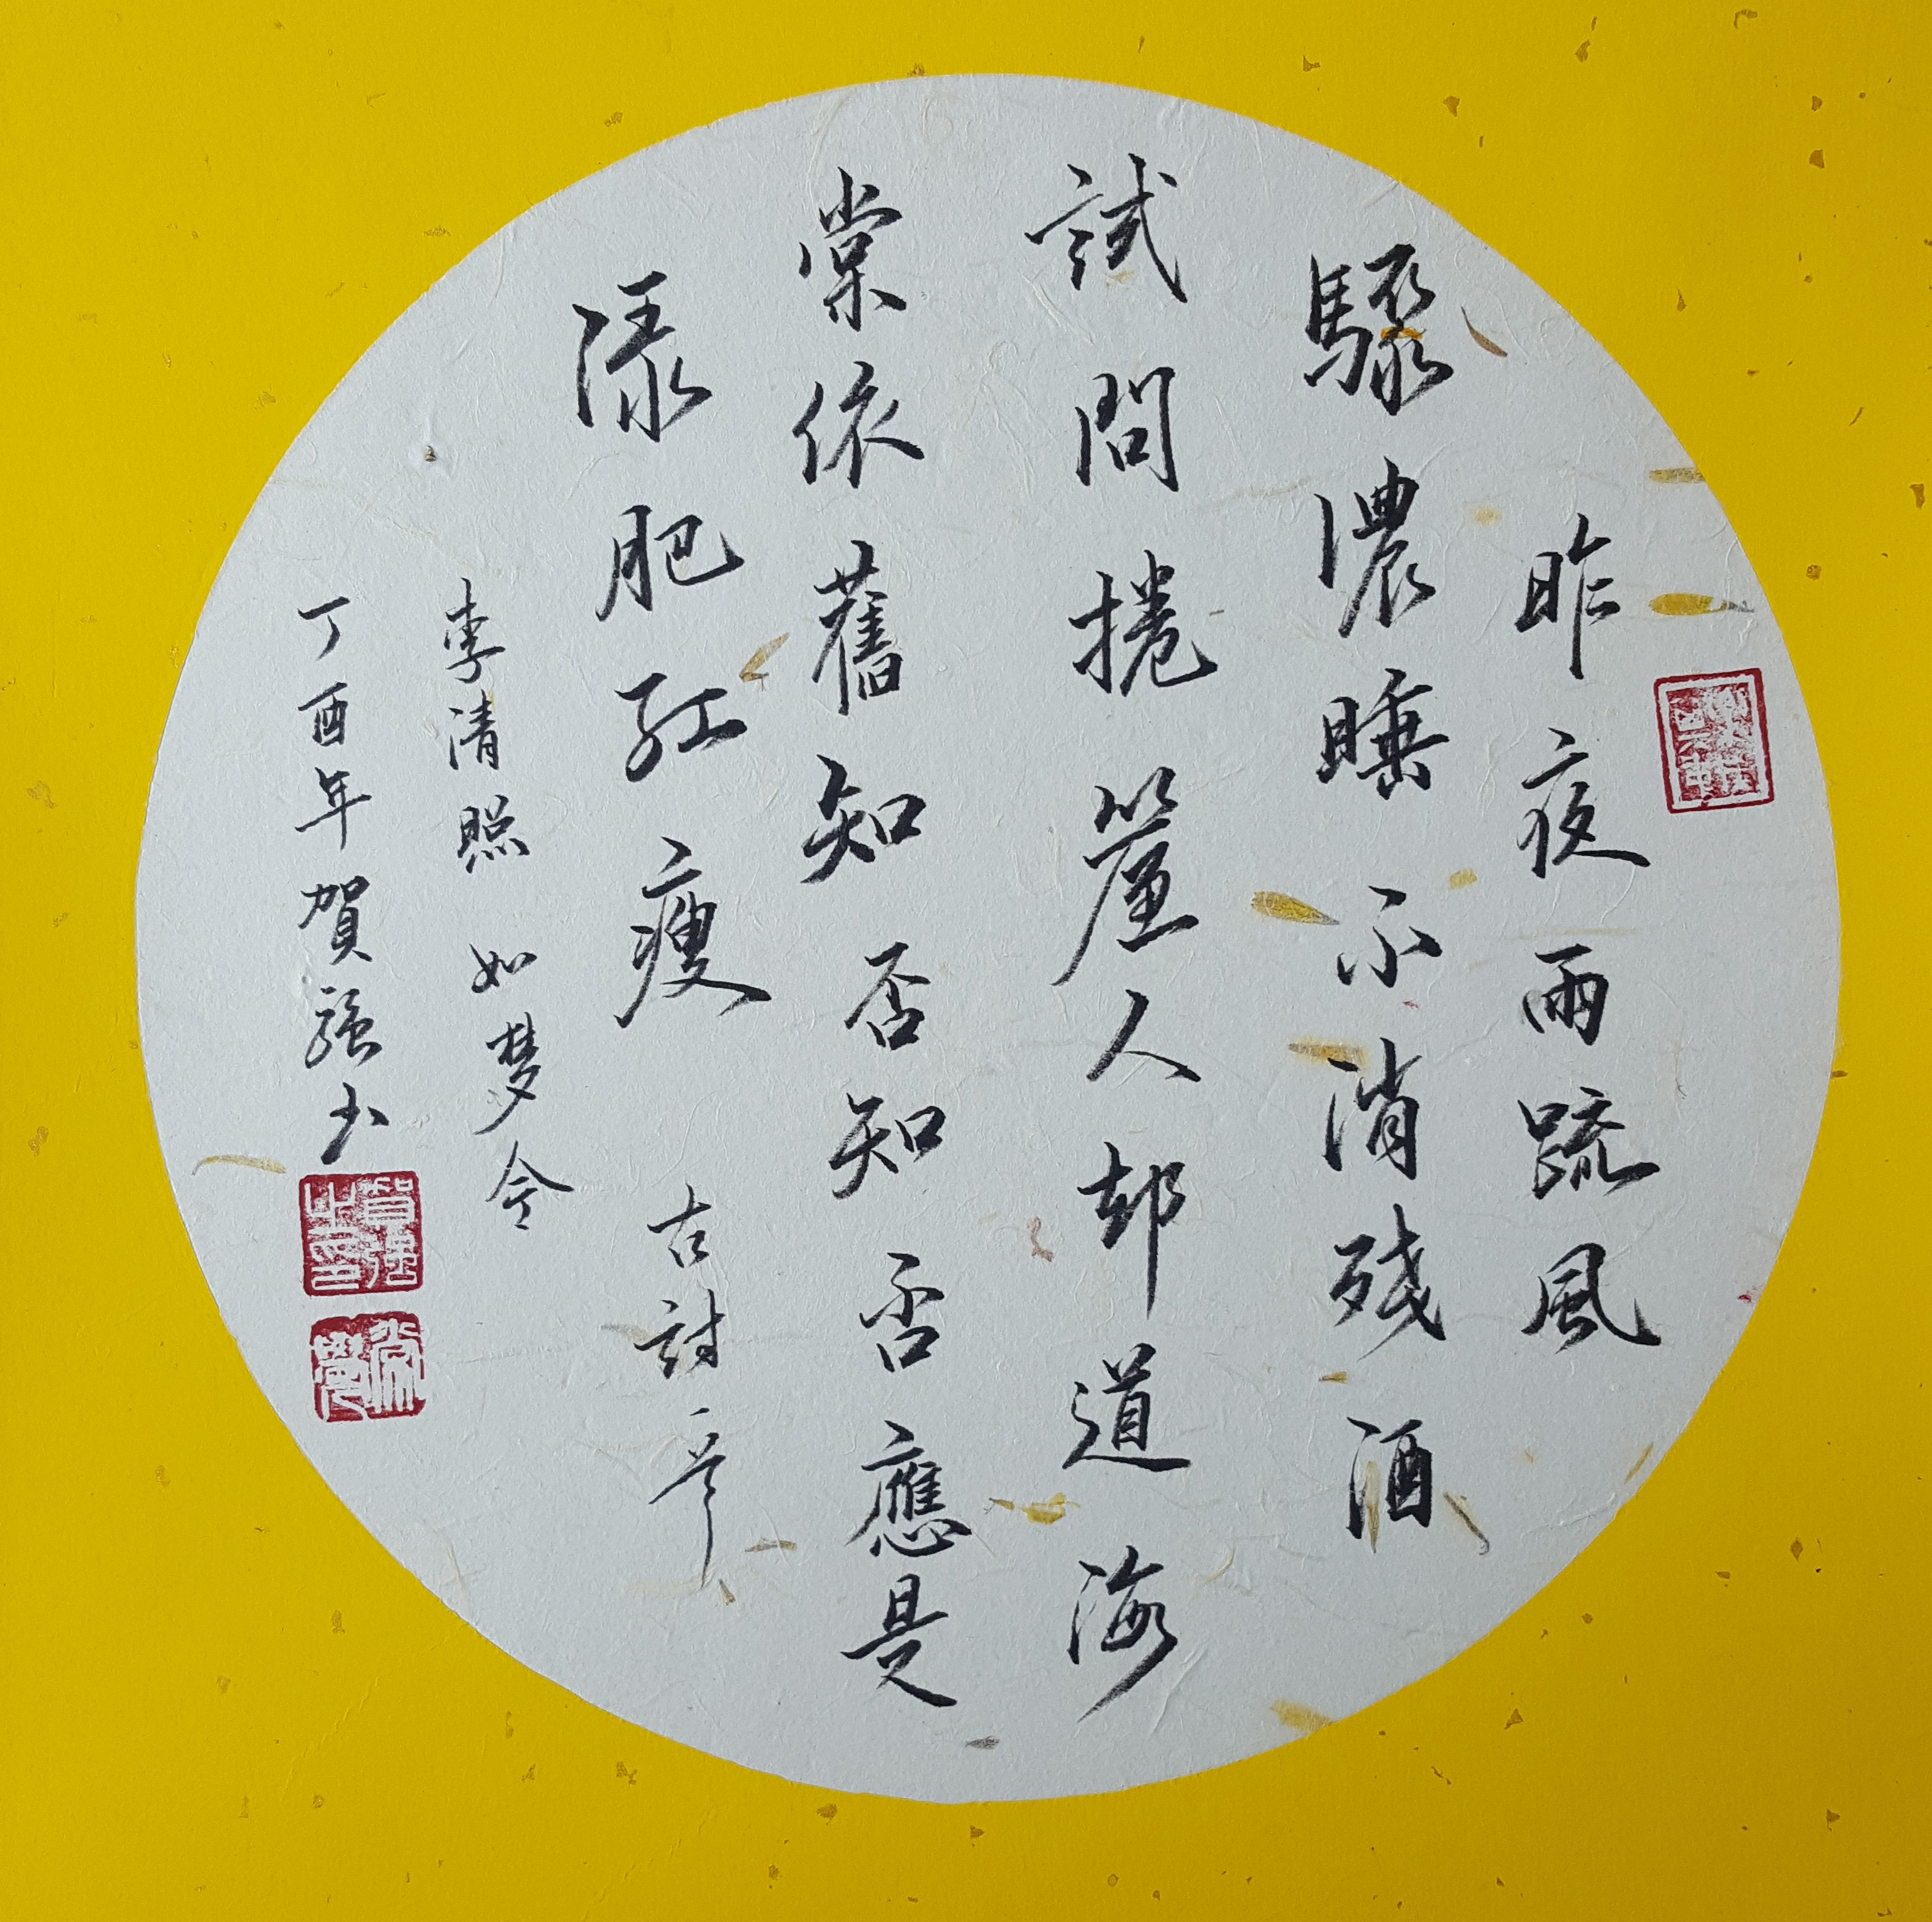 昨夜雨疏風
驟濃睡不消残酒
試問捲簾人却道海
棠依舊知否知否應是
綠肥紅瘦 古詩一首
李清照 如梦令
丁酉年賀強书
賀強之印